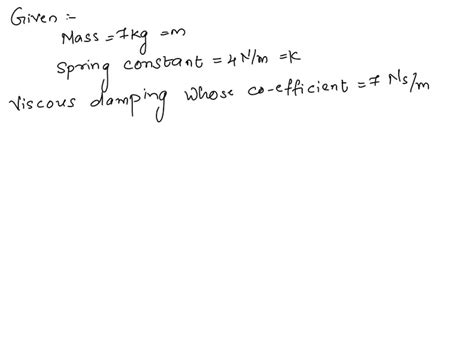 Given :-
Mass = 7kg = m
Spring constant = 4 N/m = K
Viscous damping whose co-efficient = 7 Ns/m